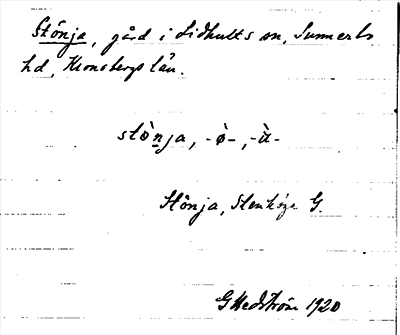 Stönja, gård i Lidhults sn, Sunnerbo
hd, Kronobergs län.
stò̈nja, -ò-, -ù-
Stönja, Stenhöge G.
G Hedström 1920